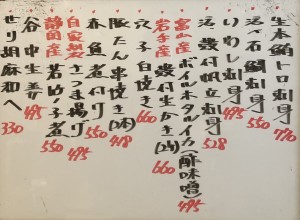 生本鮪トロ刺身 770
活〆石鯛刺身 550
いわし刺身 495
活殻付帆立刺身 528
富山産ボイルホタルイカ(酢味噌) 495
岩手産殻付生かき(山) 660
穴子白焼き 660
豚たん串焼き(2本) 418
赤魚煮付け 550
自家製さつま揚げ 495
静岡産若竹煮 550
谷中生姜 495
せり胡麻和へ 330